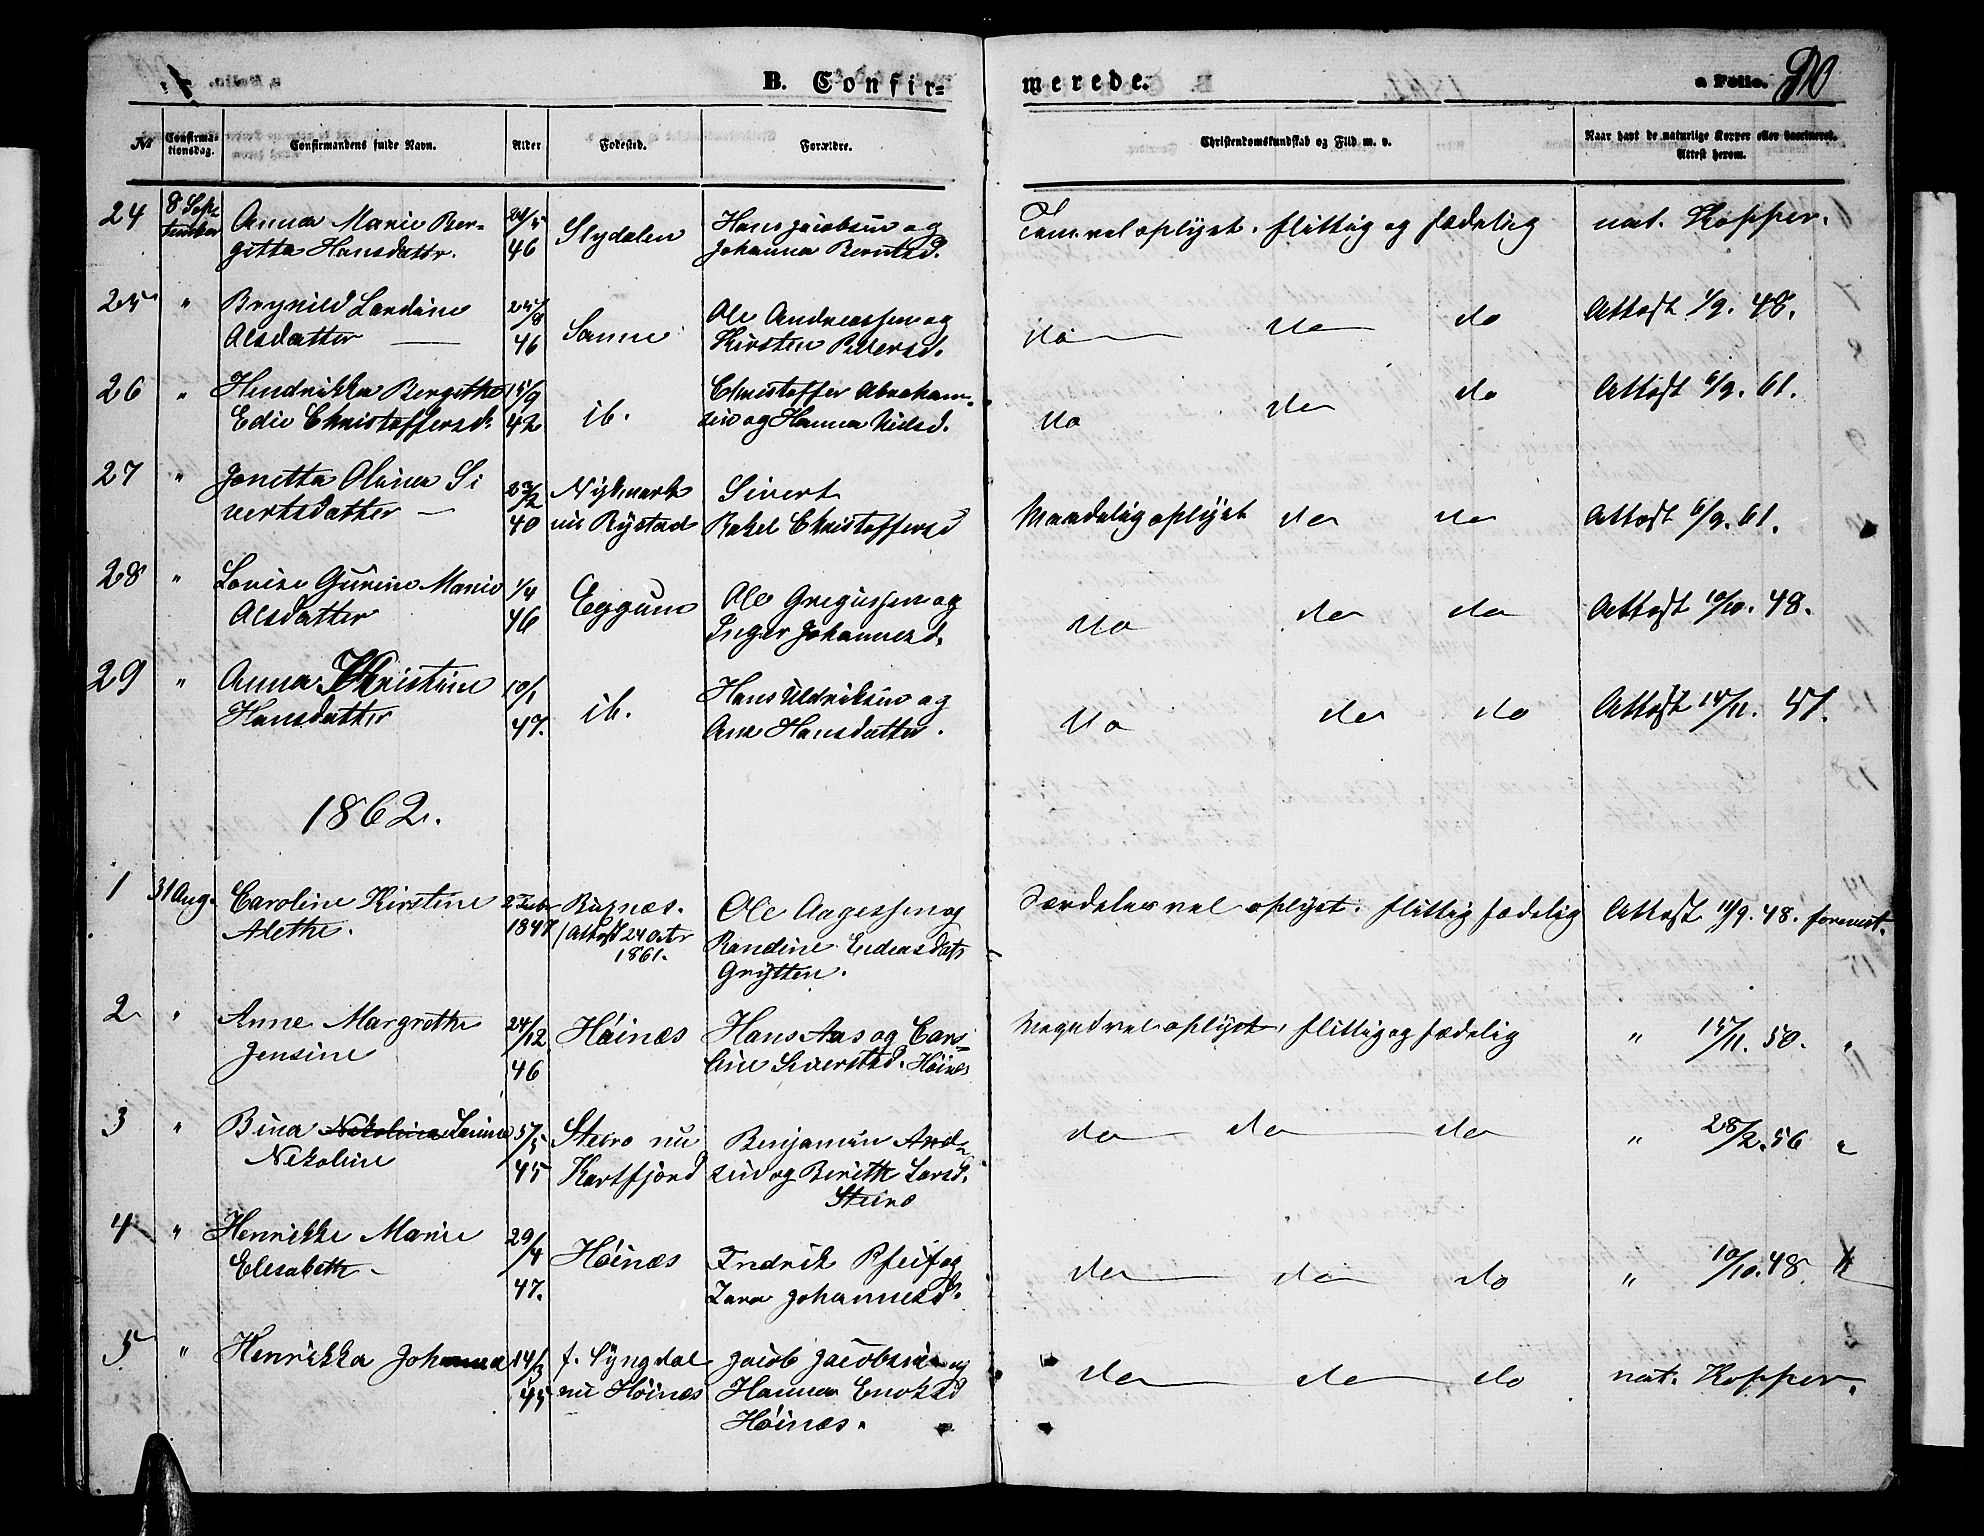 B. Confir=
merede.
a Folio. 90
No
Confirma-
tionsdag.
Confirmandens fulde Navn.
Alder
Fødested.
Forældre.
Christendomskundskab og Flid m. v.
Naar havt de naturlige Kopper eller vaccineret.
Attest herom.
24 8 Sep-
tember
Anna Marie Ber-
gitta Hansdattr.
24/5
46
Slydalen
Hans Jacobsen og
Johanna Berntsd.
Temvel oplyst. flittig og sædelig
nat. Kopper.
25 "
Brynild Lardine
Olsdatter
25/8
46
Sanne
Ole Andreassen og
Kirsten Pedersd.
do do do
Attest 1/9. 48.
26 "
Hendrikka Bergithe
Edie Christoffersd.
15/9
42
ib.
Christoffer Abraham-
sen og Hanna Nielsd.
do do do
Attest 6/9. 61.
27 "
Jonetta Olina Si
vertsdatter
23/2
40
nu Rystad
Sivert
Rakel Christoffersd
Maadelig oplyst do do
Attest 6/9. 61.
28 "
Lovise Gurine Marie
Olsdatter
1/4
46
Eggum
Ole Gregussen og
Inger Johannesd.
do do do
Attest 10/10. 48.
29 "
Anna Christine
Hansdatter
10/1
47.
ib.
Hans Uldriksen og
Ane Hansdatter.
do do do
Attest 14/11. 51.
1862.
1 31 Aug.
Caroline Kirstine
Alethe.
2 Febr
1847
Bugnæs.
/Attest 24 Octr
1861.
Ole Aagessen og
Randine Endresdatr
Grytten.
Særdeles vel oplyst. flittig sædelig
Attest 11/9. 48. foreviist.
2 "
Anne Margrethe
Jensine
24/12.
46
Höinæs
Hans Aas og Caro-
line Siversted. Höinæs
Meget vel oplyst, flittig og sædelig
" 15/11. 50. "
3 "
Bina Nikolina Larine
Nikoline
5/5
45
Steiro nu
Kartfjord
Benjamin And-
sen og Berith Larsd.
Steiro
do do do
" 28/2. 56 "
4 "
Henrikke Marie
Elesabeth
29/4
47.
Höinæs
Fredrik Pfeif og
Lava Johannesd.
do do do
" 10/10. 48. "
5 "
Henrikka Johanna
14/3
45
f. Lyngdal
nu Höinæs
Jacob Jacobsen og
Hanna Enoksd
Höinæs.
do do do
nat. Kopper.